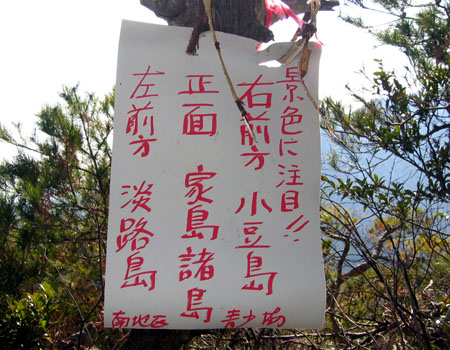 景色に注目!!
右前方 小豆島
正面 家島諸島
左前方 淡路島
南地区 青少協